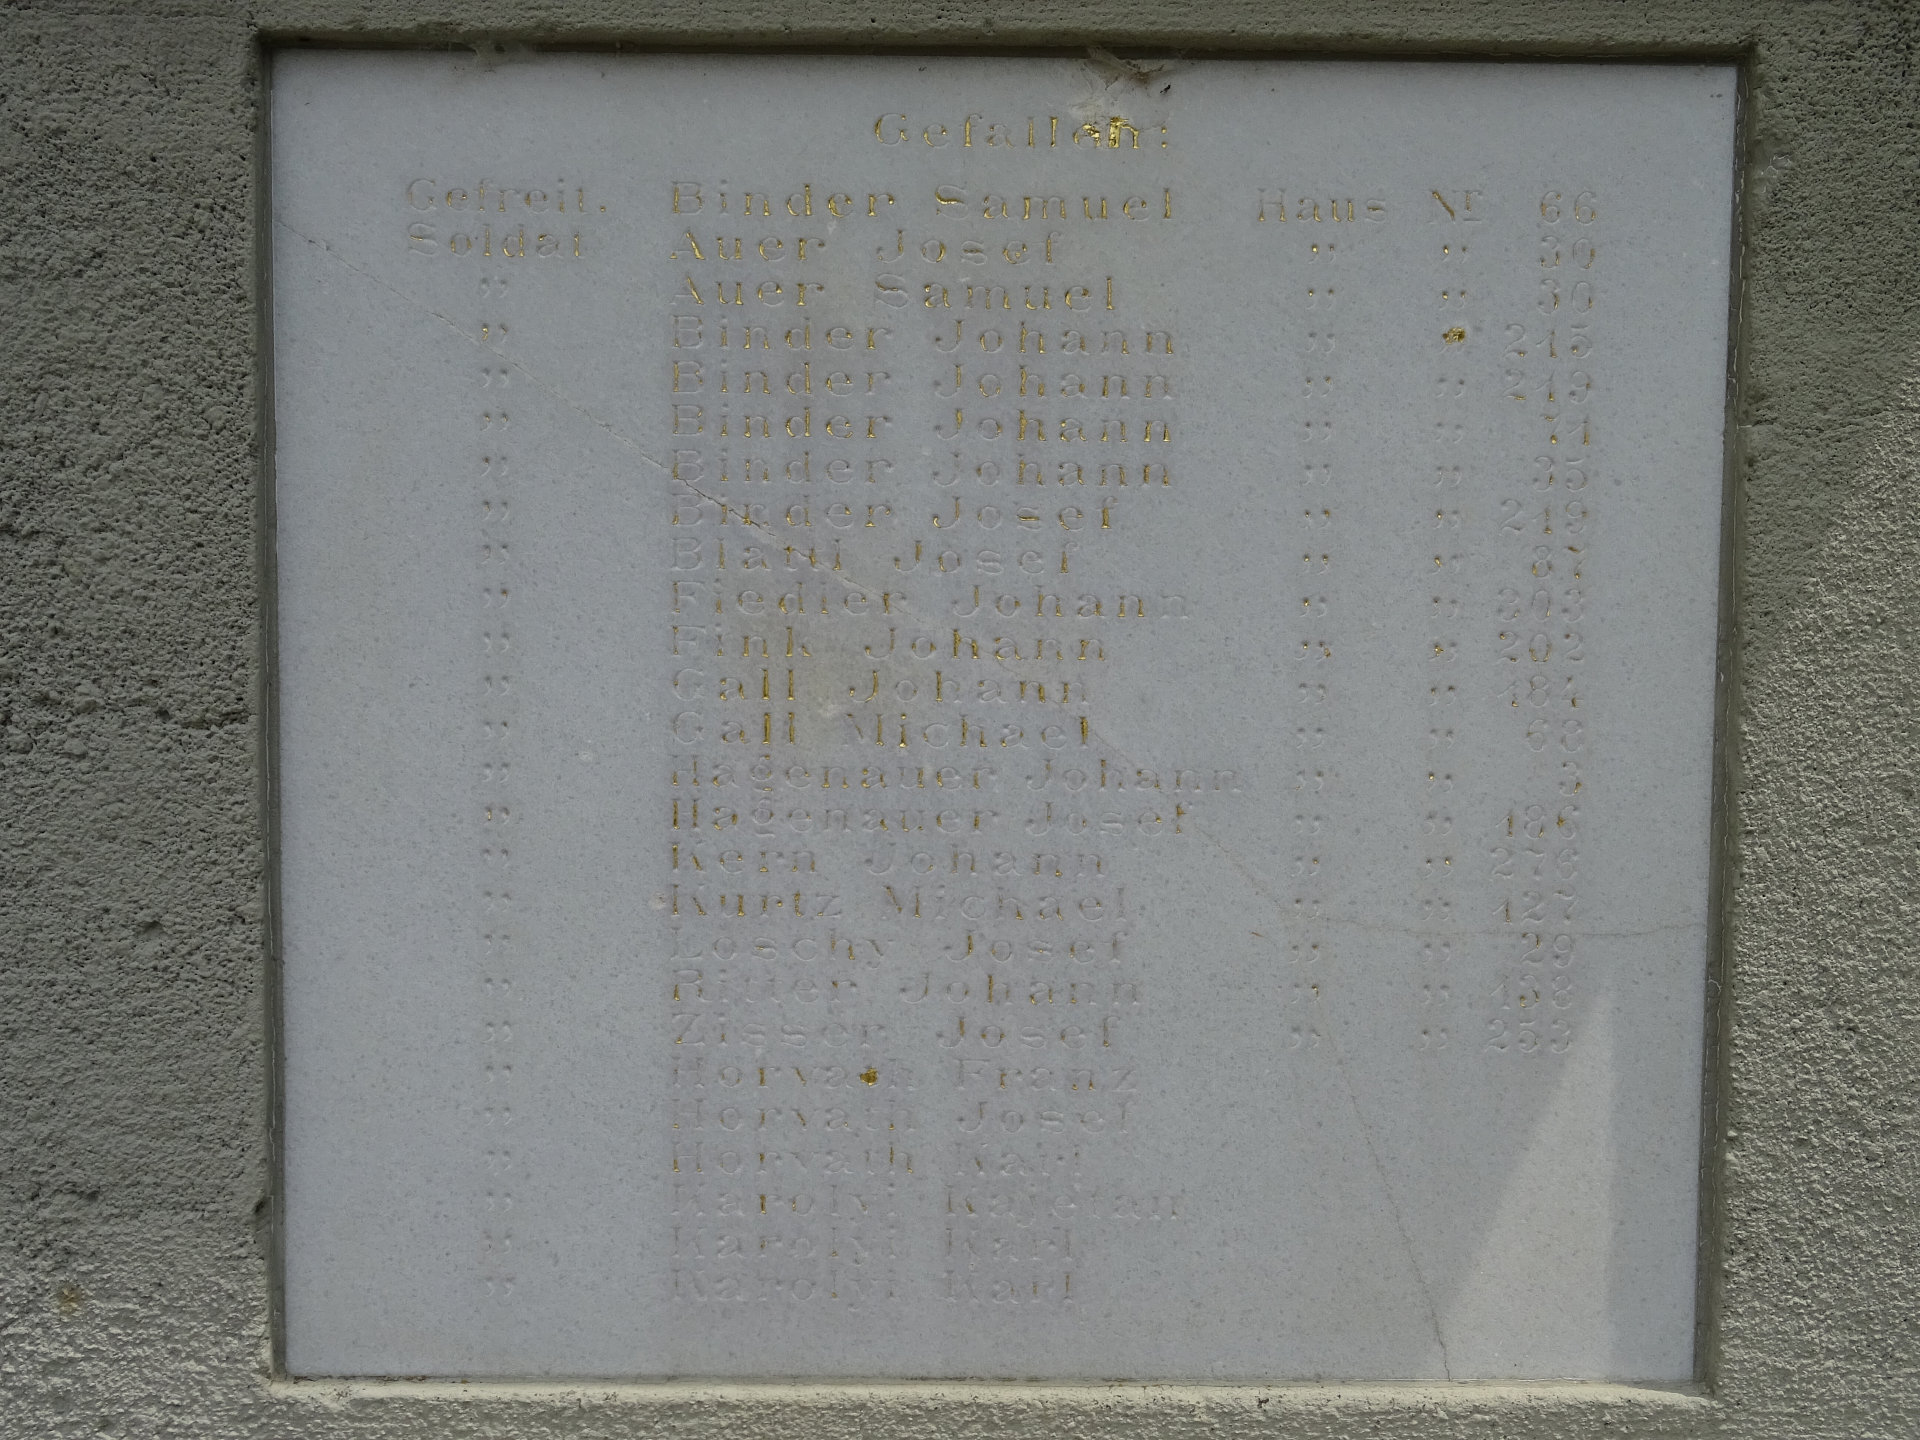 Gefallen:
Gefreit. Binder Samuel Haus Nr 66
Soldat Auer Josef " " 30
" Auer Samuel " " 30
" Binder Johann " " 215
" Binder Johann " " 219
" Binder Johann " " 71
" Binder Johann " " 35
" Binder Josef " " 219
" Blaul Josef " " 87
" Fiedler Johann " " 303
" Fink Johann " " 202
" Gall Johann " " 184
" Gall Michael " " 68
" Hagenauer Johann " " 3
" Hagenauer Josef " " 186
" Kern Johann " " 276
" Kurtz Michael " " 127
" Loschy Josef " " 29
" Ritter Johann " " 138
" Zisser Josef " " 253
" Horvath Franz
" Horvath Josef
" Horvath Karl
" Karolyi Kajetan
" Karolyi Karl
" Karolyi Karl